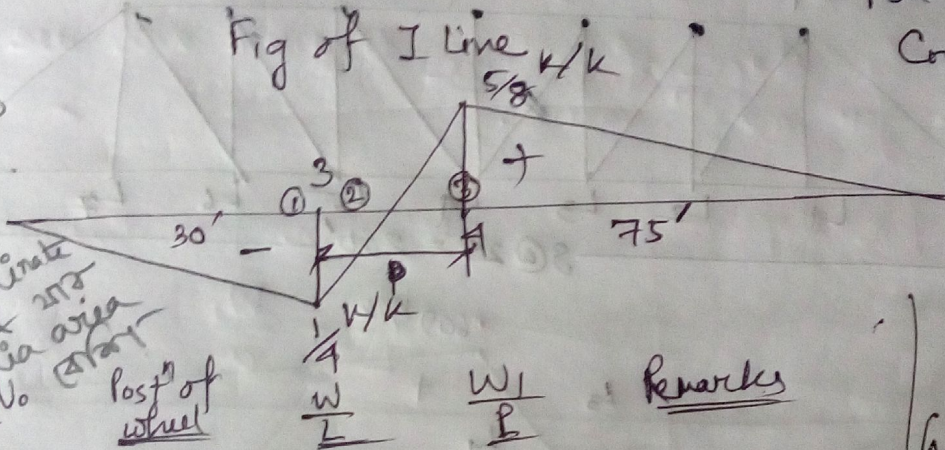 Fig of I Line
Cr
K/K
5/8
+
3
① ② ③
30' 75'
-
P
K/K
1/4
ia area
No Postⁿ of wheel W/L W1/P Remarks